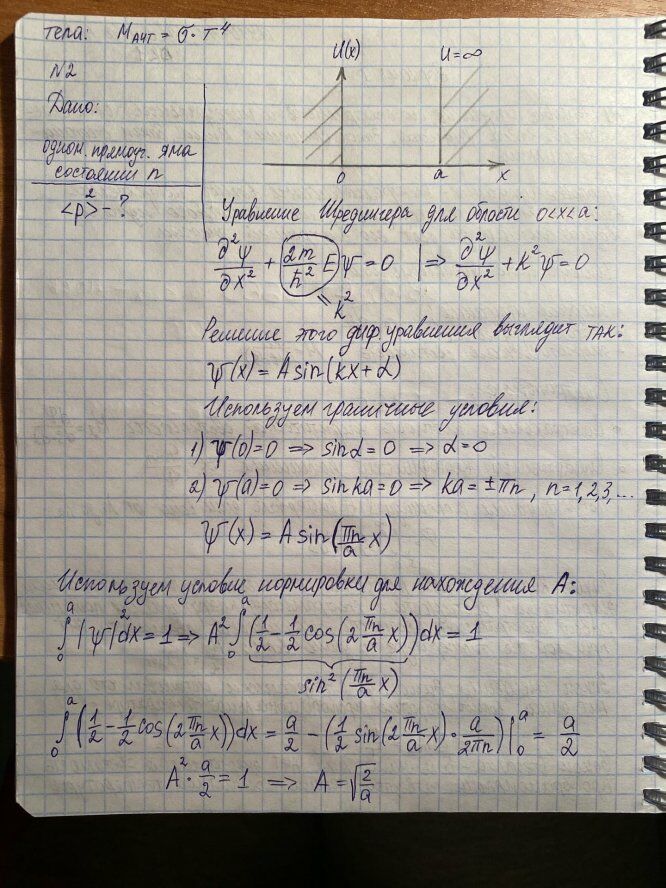 тела: M_АЧТ = σ · T⁴
U(x) U=∞
N2
Дано:
одном. прямоуг. яма
состоянии n
<p²> - ?
0 a x
Уравнение Шредингера для области 0<x<a:
∂²ψ/∂x² + (2m/ħ² E) ψ = 0 | => ∂²ψ/∂x² + k²ψ = 0
= k²
Решение этого диф. уравнения выглядит так:
ψ(x) = A sin(kx + α)
Используем граничные условия:
1) ψ(0)=0 => sin α = 0 => α = 0
2) ψ(a)=0 => sin ka = 0 => ka = ±πn, n=1,2,3,...
ψ(x) = A sin(πn/a x)
Используем условие нормировки для нахождения A:
∫₀ᵃ |ψ|² dx = 1 => A² ∫₀ᵃ (1/2 - 1/2 cos(2 πn/a x)) dx = 1
sin²(πn/a x)
∫₀ᵃ (1/2 - 1/2 cos(2 πn/a x)) dx = a/2 - (1/2 sin(2 πn/a x) · a/2πn) |₀ᵃ = a/2
A² · a/2 = 1 => A = √(2/a)